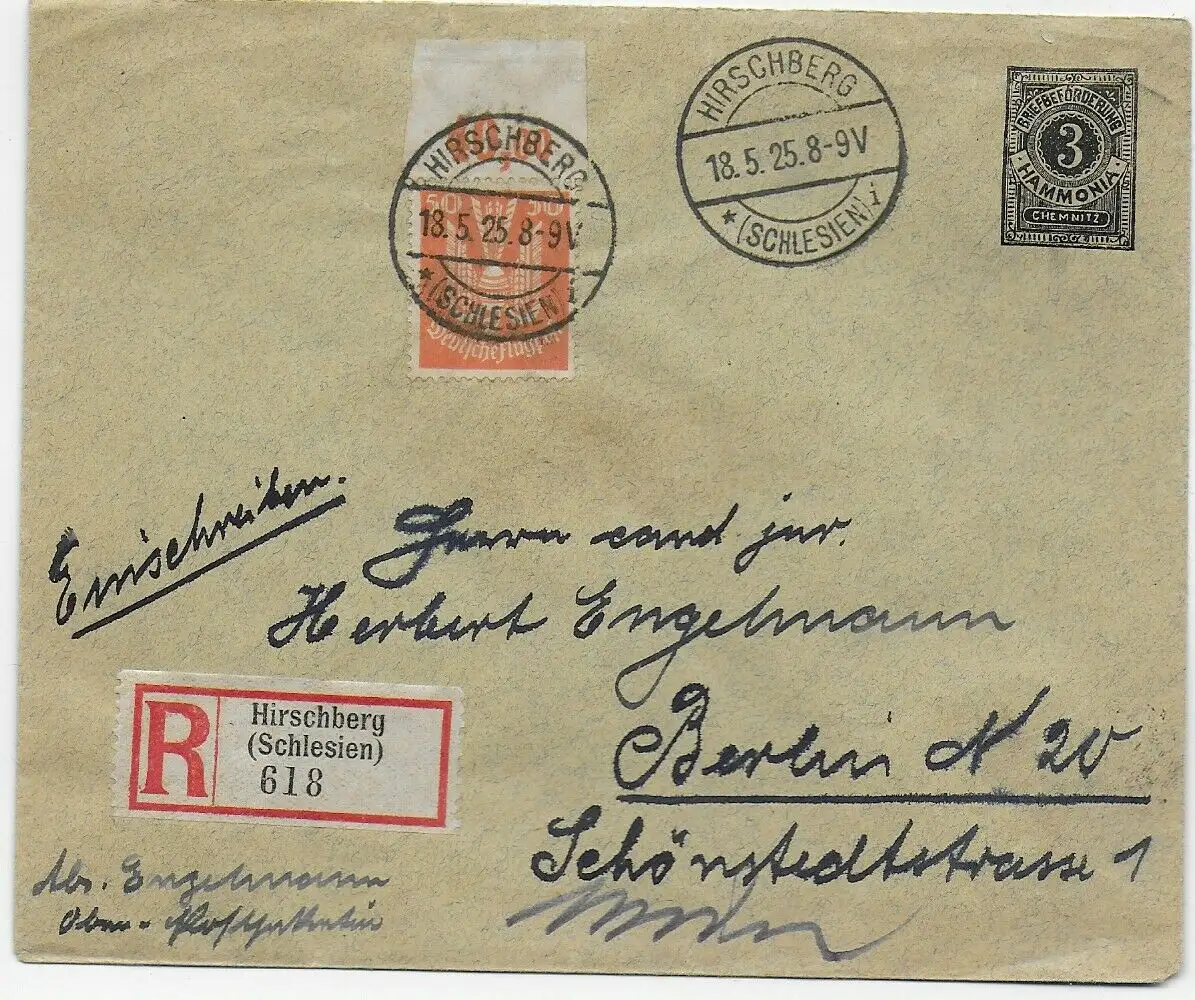 HIRSCHBERG
18. 5. 25. 8-9V
* (SCHLESIEN) i
50 50
HIRSCHBERG
18. 5. 25. 8-9V
* (SCHLESIEN) i
BRIEFBEFÖRDERUNG
3
· HAMMONIA ·
CHEMNITZ
Einschreiben.
Herrn cand jur.
Herbert Engelmann
Berlin N 20
Schönstedtstrasse 1
R
Hirschberg
(Schlesien)
618
Abs. Engelmann
Ober-